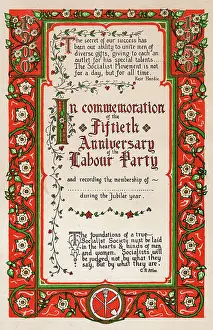 The secret of our success has
been our ability to unite men of
diverse gifts, giving to each an
outlet for his special talents...
The Socialist Movement is not
for a day, but for all time.
Keir Hardie
In commemoration
of the
Fiftieth
Anniversary
of the
Labour Party
and recording the membership of ~
during the Jubilee year.
The foundations of a true
Socialist Society must be laid
in the hearts & minds of men
and women. Socialists will
be judged, not by what they
say, but by what they are.